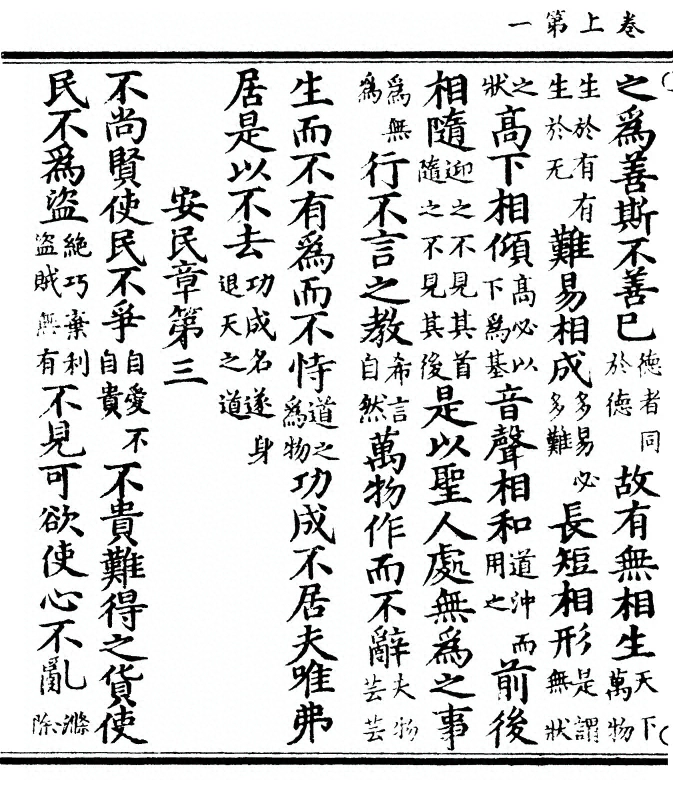 卷上第一
之爲善斯不善已德者同於德故有無相生天下萬物
生於有有生於无難易相成多易必多難長短相形是謂無狀
之狀高下相傾高必以下爲基音聲相和道沖而用之前後
相隨迎之不見其首隨之不見其後是以聖人處無爲之事
爲無爲行不言之教希言自然萬物作而不辭夫物芸芸
生而不有爲而不恃道之爲物功成不居夫唯弗
居是以不去功成名遂身退天之道
安民章第三
不尚賢使民不爭自愛不自貴不貴難得之貨使
民不爲盜絕巧棄利盜賊無有不見可欲使心不亂滌除